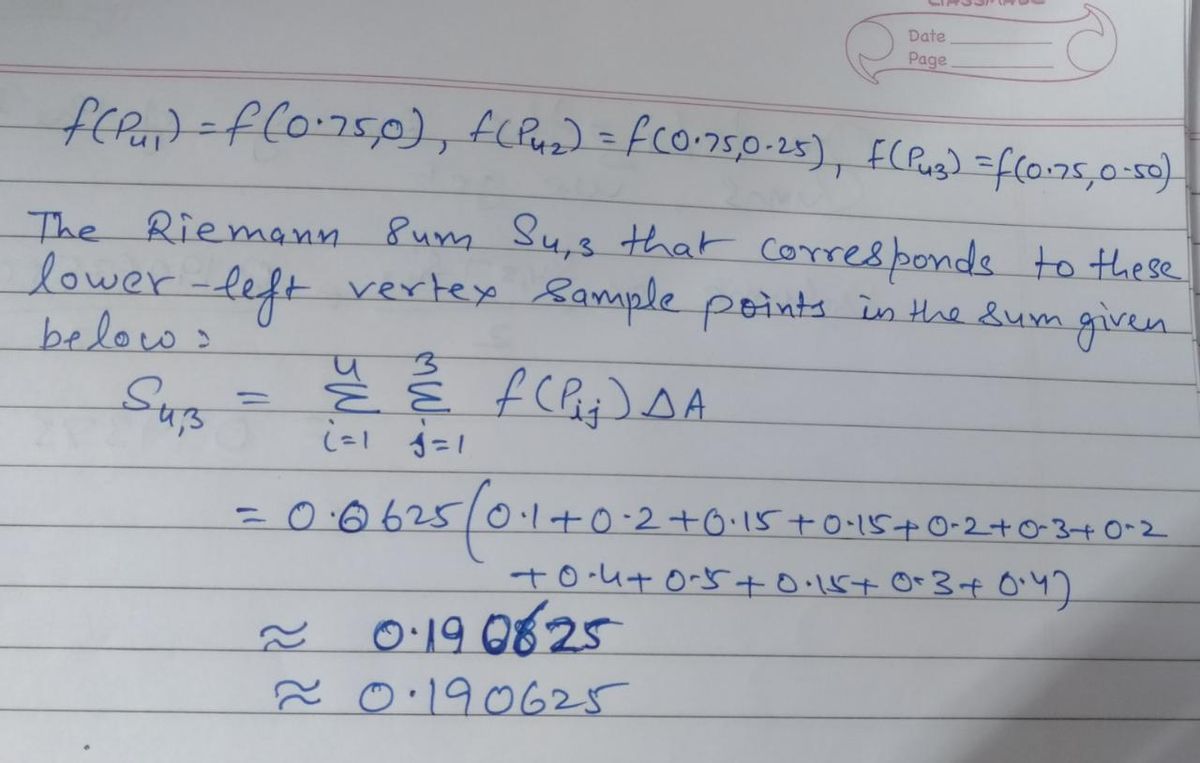 Date
Page
f(P41) = f(0.75,0), f(P42) = f(0.75,0.25), f(P43) = f(0.75,0.50)
The Riemann Sum S4,3 that corresponds to these
lower-left vertex Sample points in the sum given
below:
4 3
S4,3 = Σ Σ f(Pij) ΔA
i=1 j=1
= 0.0625(0.1+0.2+0.15+0.15+0.2+0.3+0.2
+0.4+0.5+0.15+0.3+0.4)
≈ 0.190625
≈ 0.190625